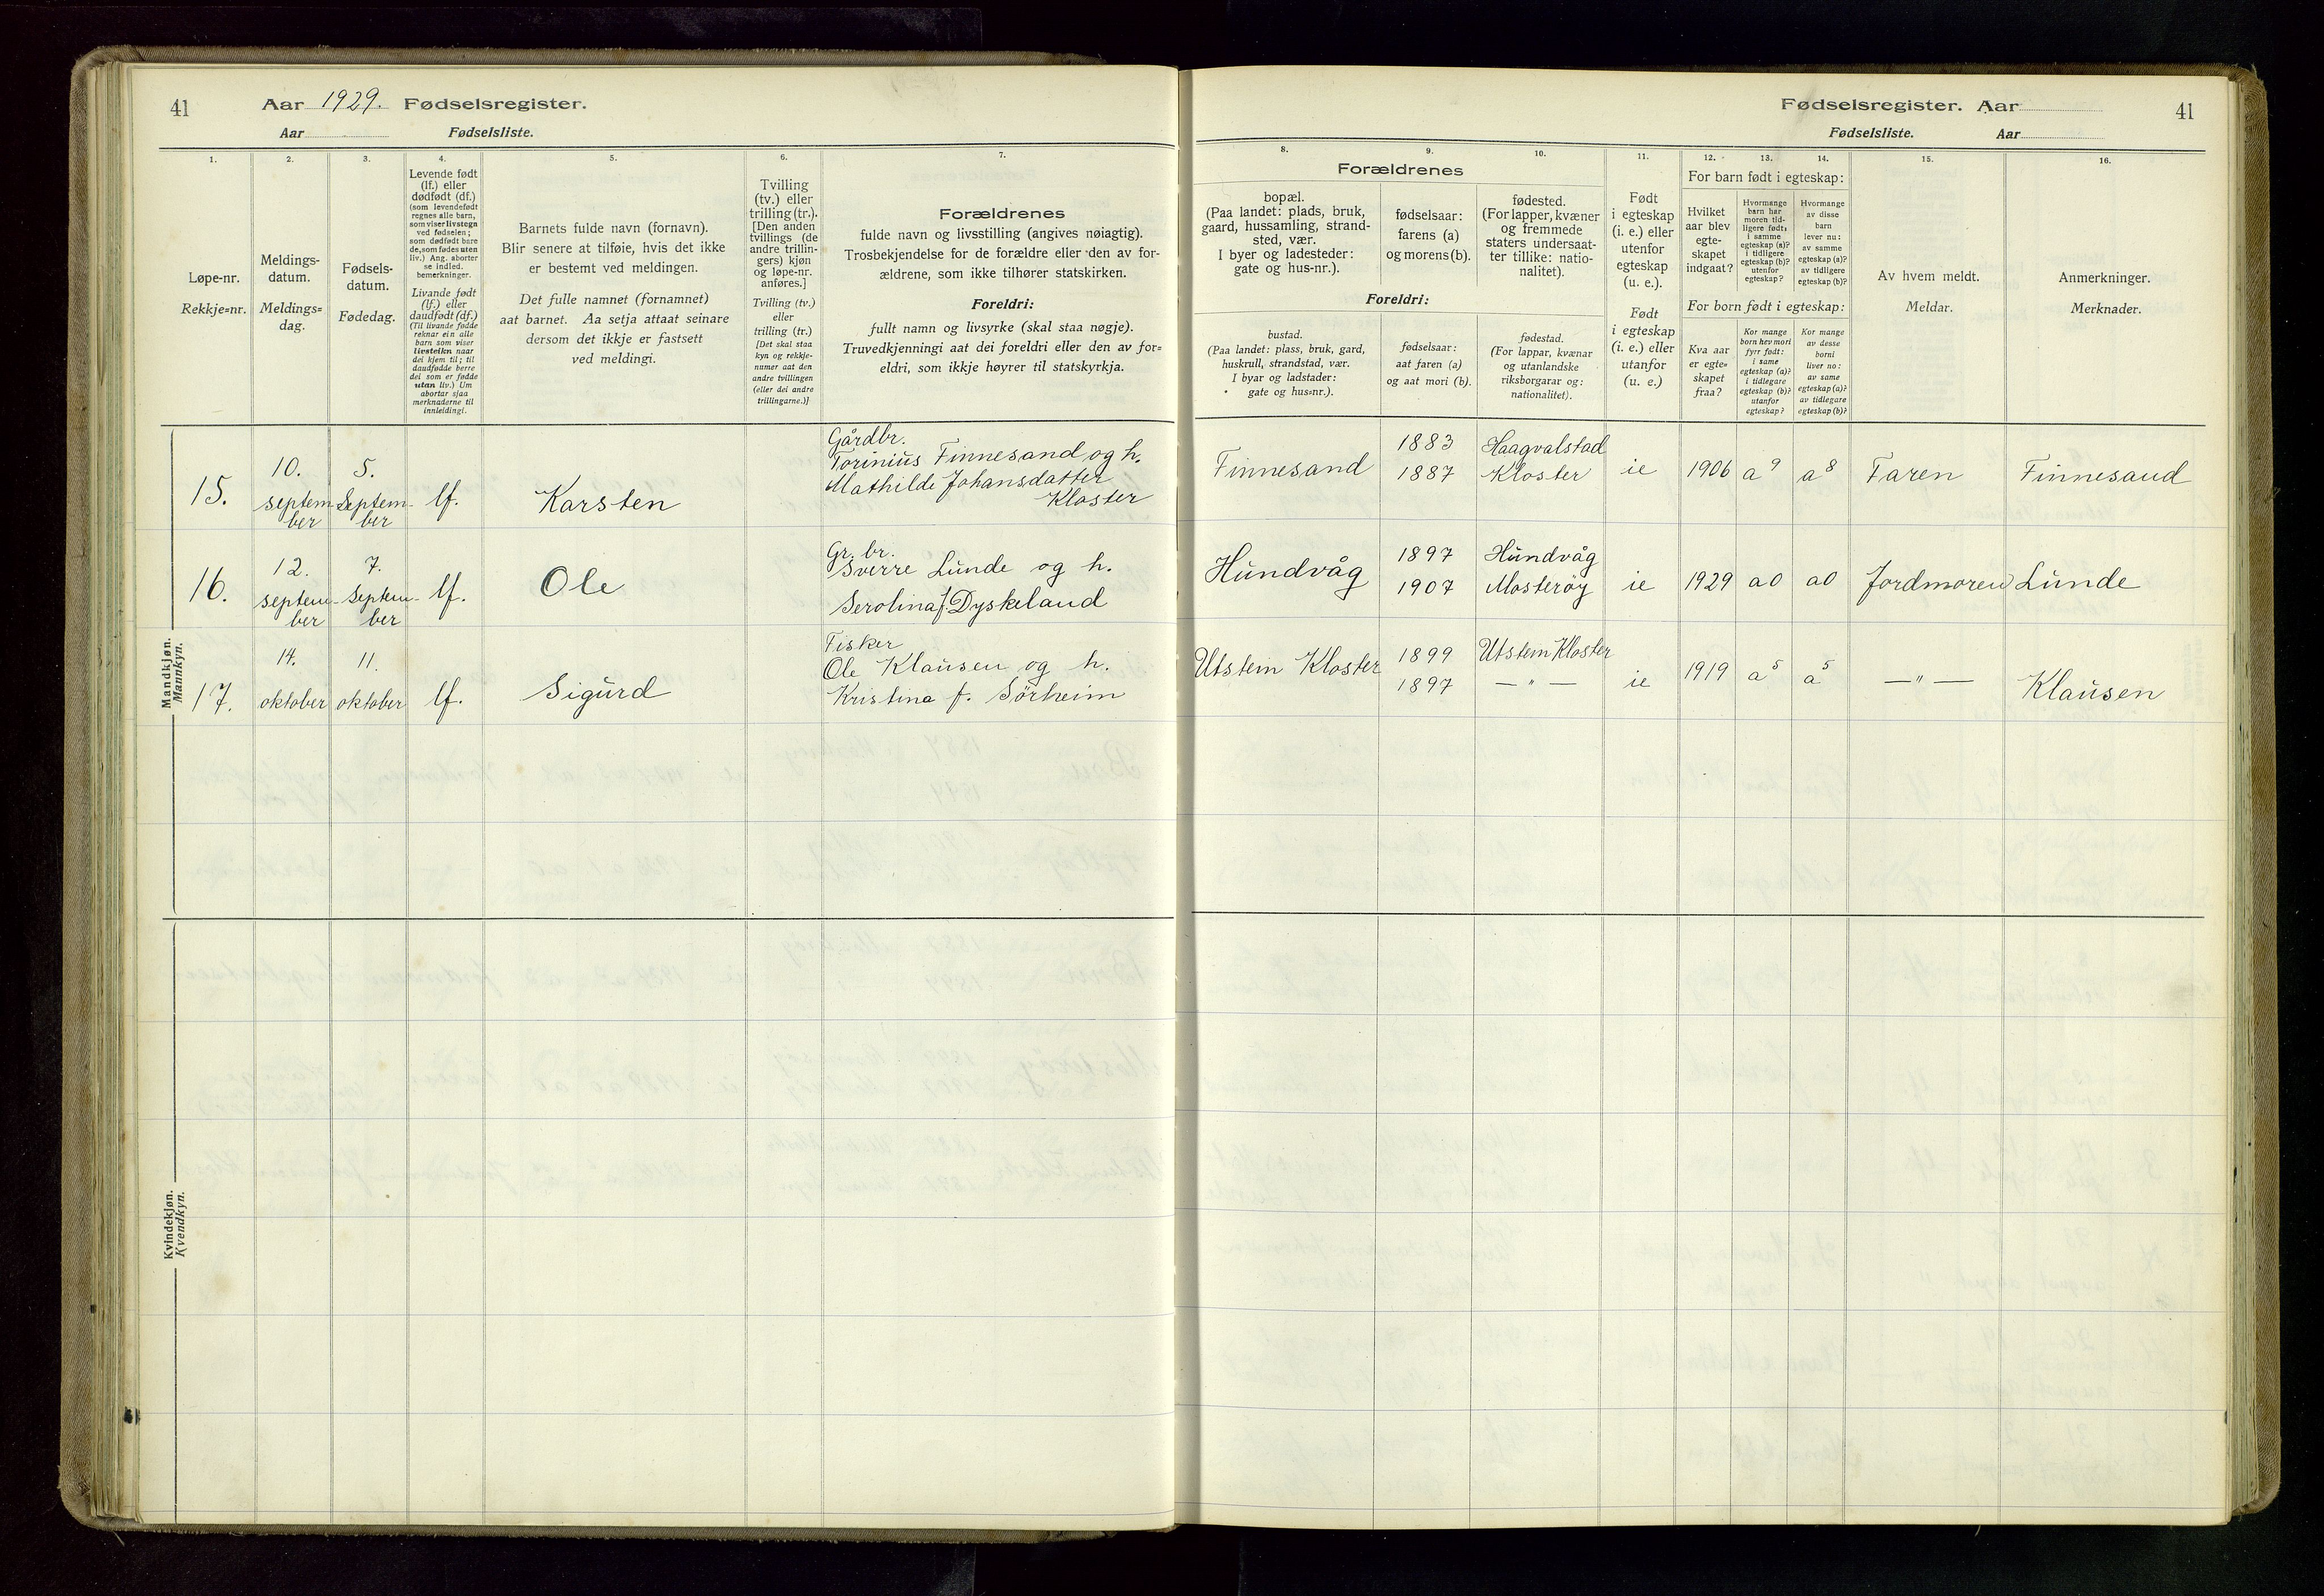 41 Aar 1929. Fødselsregister.
Aar Fødselsliste.
Fødselsregister. Aar 41
Fødselsliste. Aar
1. 2. 3. 4. 5. 6. 7.
Løpe-nr.
Rekkje=nr.
Meldings-
datum.
Meldings=
dag.
Fødsels-
datum.
Fødedag.
Levende født
(lf.) eller
dødfødt (df.)
(som levendefødt
regnes alle barn,
som viser livstegn
ved fødselen;
som dødfødt bare
de, som fødes uten
liv.) Ang. aborter
se indled.
bemerkninger.
Livande født
(lf.) eller
daudfødt (df.)
(Til livande fødde
reknar ein alle
barn som viser
livsteikn naar
dei kjem til; til
daudfødde berre
dei som er fødde
utan liv.) Um
abortar sjaa
merknaderne til
innleidingi.
Barnets fulde navn (fornavn).
Blir senere at tilføie, hvis det ikke
er bestemt ved meldingen.
Det fulle namnet (fornamnet)
aat barnet. Aa setja attaat seinare
dersom det ikkje er fastsett
ved meldingi.
Tvilling
(tv.) eller
trilling (tr.).
[Den anden
tvillings (de
andre trillin-
gers) kjøn
og løpe-nr.
anføres.]
Tvilling (tv.)
eller
trilling (tr.)
[Det skal staa
kyn og rekkje-
numer aat den
andre tvillingen
(eller dei andre
trillingarne.)]
Forældrenes
fulde navn og livsstilling (angives nøiagtig).
Trosbekjendelse for de forældre eller den av for-
ældrene, som ikke tilhører statskirken.
Foreldri:
fullt namn og livsyrke (skal staa nøgje).
Truvedkjenningi aat dei foreldri eller den av for=
eldri, som ikkje høyrer til statskyrkja.
8. 9. 10. 11. 12. 13. 14. 15. 16.
Forældrenes
bopæl.
(Paa landet: plads, bruk,
gaard, hussamling, strand-
sted, vær.
I byer og ladesteder:
gate og hus-nr.).
fødselsaar:
farens (a)
og morens (b).
fødested.
(For lapper, kvæner
og fremmede
staters undersaat-
ter tillike: natio-
nalitet).
Foreldri:
bustad.
(Paa landet: plass, bruk, gard,
huskrull, strandstad, vær.
I byar og ladstader:
gate og hus=nr.).
fødselsaar:
aat faren (a)
og aat mori (b).
fødestad.
(For lappar, kvænar
og utanlandske
riksborgarar og:
nationalitet).
Født
i egteskap
(i. e.) eller
utenfor
egteskap
(u. e.).
Født
i egteskap
(i. e.) eller
utanfor
(u. e.)
For barn født i egteskap:
Hvilket
aar blev
egte-
skapet
indgaat?
Hvormange
barn har
moren tid-
ligere født:
i samme
egteskap (a)?
i tidligere
egteskap (b)?
utenfor
egteskap?
Hvormange
av disse
barn
lever nu:
av samme
egteskap (a)?
av tidligere
egteskap (b)?
For born født i egteskap:
Kva aar
er egte=
skapet
fraa?
Kor mange
born hev mori
fyrr født:
i same
egteskap (a)?
i tidlegare
egteskap (b)?
utanfor
egteskap?
Kor mange
av desse
borni
liver no:
av same
egteskap (a)?
av tidlegare
egteskap (b)?
Av hvem meldt.
Meldar.
Anmerkninger.
Merknader.
Mandkjøn.
Mannkyn.
15.
10.
septem
ber
5.
Septem-
ber
lf.
Karsten
Gårdbr.
Torinius Finnesand og h.
Mathilde Johansdatter
Kloster
Finnesand
1883
1887
Haagvalstad
Kloster
ie 1906 a 9 a 8 Faren Finnesand
16.
12.
septem-
ber
7.
Septem-
ber
lf.
Ole
Gr. br.
Sverre Lunde og h.
Serolina f. Dyskeland
Hundvåg
1897
1907
Hundvåg
Mosterøy
ie 1929 a0 a0 Jordmoren Lunde
17.
14.
oktober
11.
oktober
lf.
Sigurd
Fisker
Ole Klausen og h.
Kristina f. Sörheim
Utstein Kloster
1899
1897
Utstein Kloster
— " —
ie 1919 a 5 a 5 — " — Klausen
Kvindekjøn.
Kvendkyn.